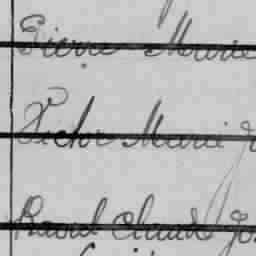 Pierre Marie
Victor Marie
Raoul Claude Jo